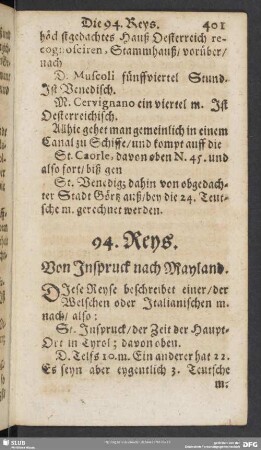 Die 94. Reys. 401
häd stgedachtes Hauß Oesterreich re-
cognosciren, Stammhauß/ vorüber/
nach
D. Muscoli fünffviertel Stund.
Ist Venedisch.
M. Cervignano ein viertel m. Ist
Oesterreichisch.
Alhie gehet man gemeinlich in einem
Canal zu Schiffe/ und kompt auff die
St. Caorle, davon oben N. 45. und
also fort/ biß gen
St. Venedig; dahin von obgedach-
ter Stadt Görtz auß/ bey die 24. Teut-
sche m. gerechnet werden.
94. Reys.
Von Inspruck nach Mayland.
DIese Reyse beschreibet einer/ der
Welschen oder Italianischen m.
nach/ also:
St. Inspruck/ der Zeit der Haupt-
Ort in Tyrol; davon oben.
D. Telfs 10. m. Ein anderer hat 22.
Es seyn aber eygentlich 3. Teutsche
m.
SLUB
DFG